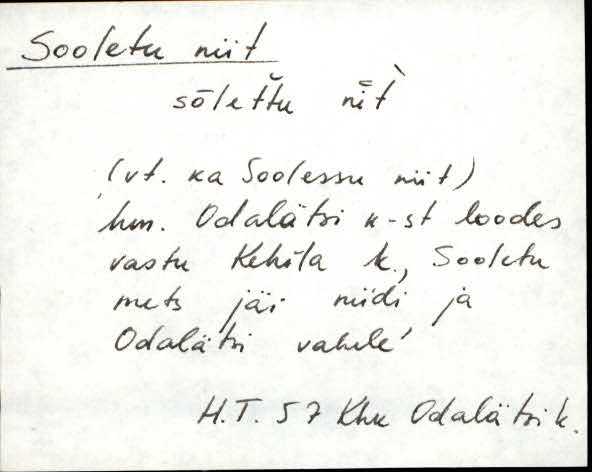 Sooletu niit
sōlet̆tu nīt̀
(vt. ka Soolessu niit)
hm. Odalätsi k-st loodes
vastu Kehila k., Sooletu
mets jäi niidi ja
Odalätsi vahele'
H.T. 57 Khk Odalätsi k.